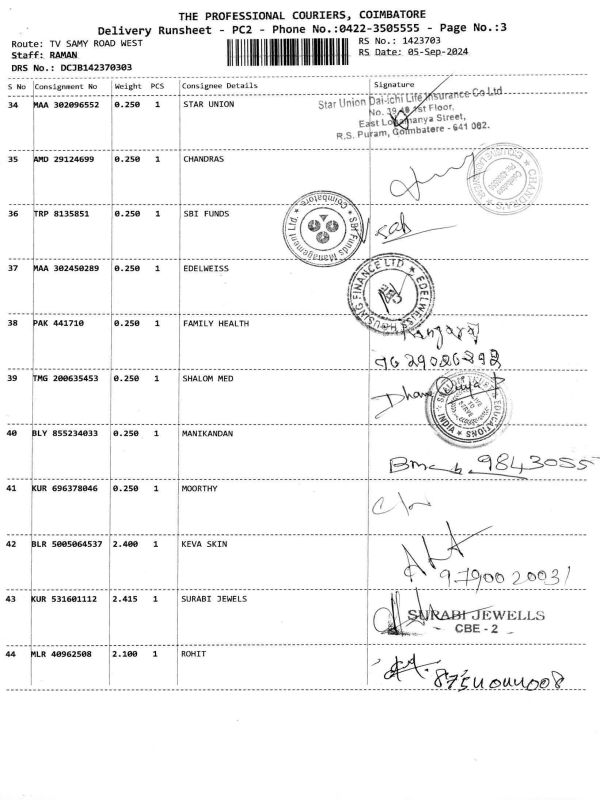 THE PROFESSIONAL COURIERS, COIMBATORE
Delivery Runsheet - PC2 - Phone No.:0422-3505555 - Page No.:3
Route: TV SAMY ROAD WEST
RS No.: 1423703
Staff: RAMAN
RS Date: 05-Sep-2024
DRS No.: DCJB142370303
S No Consignment No Weight PCS Consignee Details Signature
34 MAA 302096552 0.250 1 STAR UNION
Star Union Dai-ichi Life Insurance Co Ltd
1st Floor,
East Lokamanya Street,
R.S. Puram, Coimbatore - 641 002.
35 AMD 29124699 0.250 1 CHANDRAS
36 TRP 8135851 0.250 1 SBI FUNDS
SBI Funds Management Ltd. * Coimbatore *
37 MAA 302450289 0.250 1 EDELWEISS
EDELWEISS HOUSING FINANCE LTD
38 PAK 441710 0.250 1 FAMILY HEALTH
39 TMG 200635453 0.250 1 SHALOM MED
EDUCATIONS * INDIA
40 BLY 855234033 0.250 1 MANIKANDAN
9843055
41 KUR 696378046 0.250 1 MOORTHY
42 BLR 5005064537 2.400 1 KEVA SKIN
9790020031
43 KUR 531601112 2.415 1 SURABI JEWELS
SURABI JEWELLS
CBE - 2
44 MLR 40962508 2.100 1 ROHIT